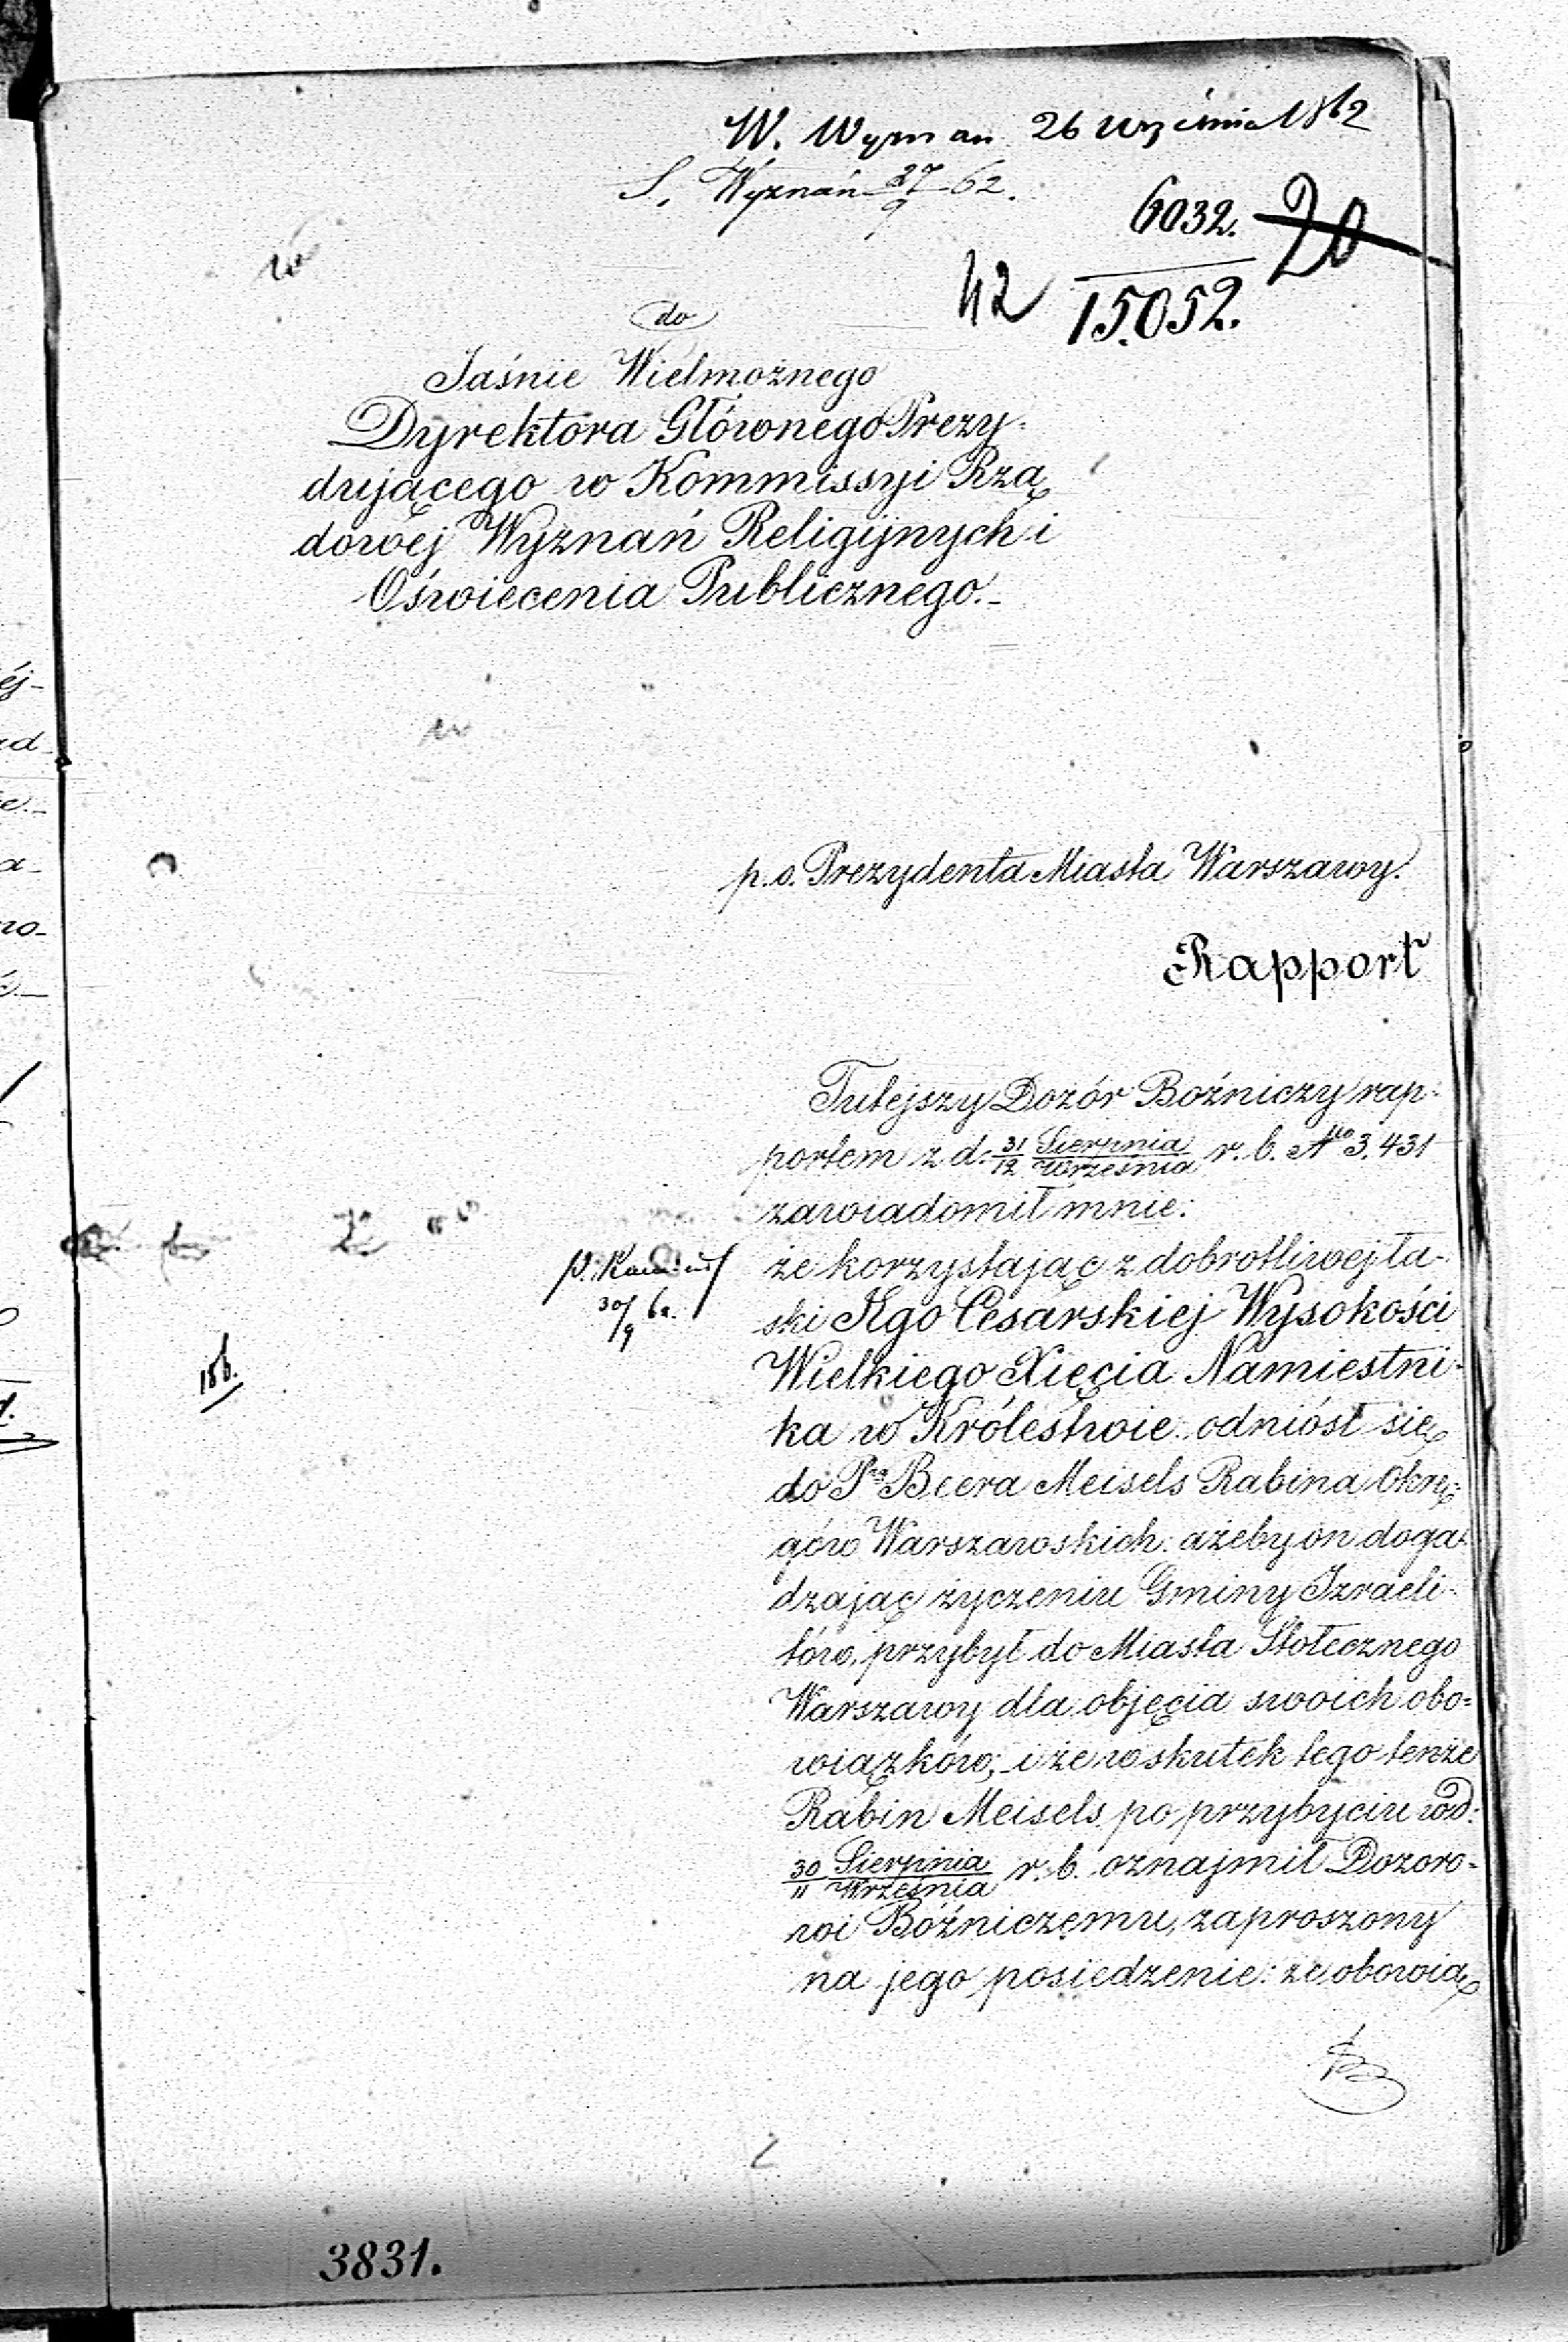 W. Wyznan 26 września 1862
S. Wyznań 27/9 62.
6032.
20
42
15052.
do
Jaśnie Wielmożnego
Dyrektora Głównego Prezy-
dującego w Kommissyi Rzą
dowej Wyznań Religijnych i
Oświecenia Publicznego.
p.o. Prezydenta Miasta Warszawy.
Rapport
Tutejszy Dozór Bożniczy rap-
portem z d. 31/12 Sierpnia/Września r. b. No 3.431
zawiadomił mnie:
że korzystając z dobrotliwej ła-
ski Jego Cesarskiej Wysokości
Wielkiego Xięcia Namiestni-
ka w Królestwie: odniósł się
do Pna Beera Meisels Rabina Okrę-
gów Warszawskich: ażeby on doga-
dzając życzeniu Gminy Izraeli-
tów, przybył do Miasta Stołecznego
Warszawy dla objęcia swoich obo-
wiązków; i że wskutek tego tenże
Rabin Meisels po przybyciu w d:
30/11 Sierpnia/Września r. b. oznajmił Dozoro-
wi Bóżniczemu, zaproszony
na jego posiedzenie: że obowią
30/9 62.
186.
3831.